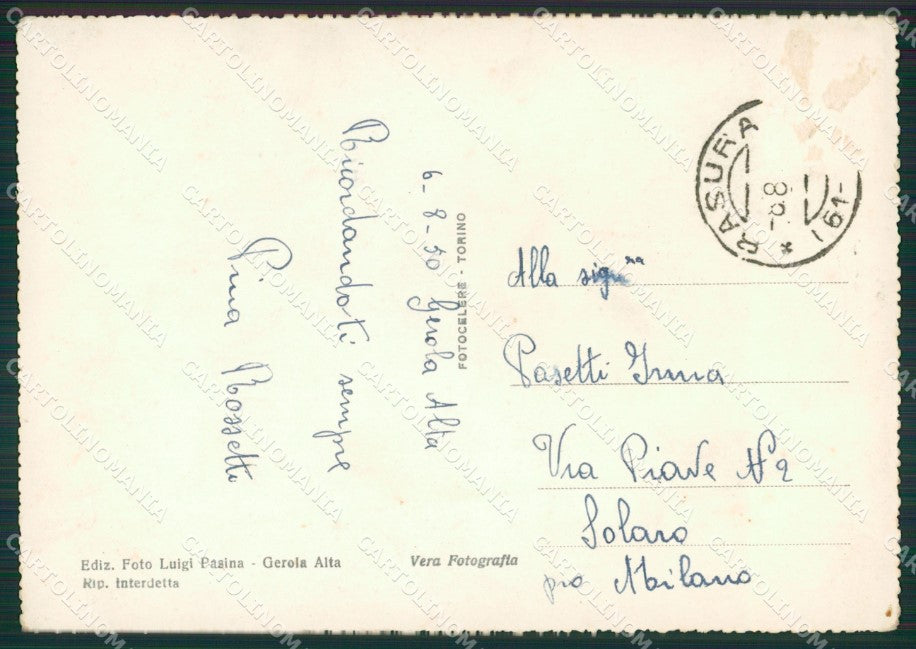 6-8-50 Gerola Alta
Ricordandoti sempre
Pina Rossetti
FOTOCELERE - TORINO
RASURA
Alla sig.na
Pasetti Irma
Via Piave N 2
Solaro
pro Milano
Ediz. Foto Luigi Pasina - Gerola Alta
Rip. Interdetta
Vera Fotografia
CARTOLINOMANIA